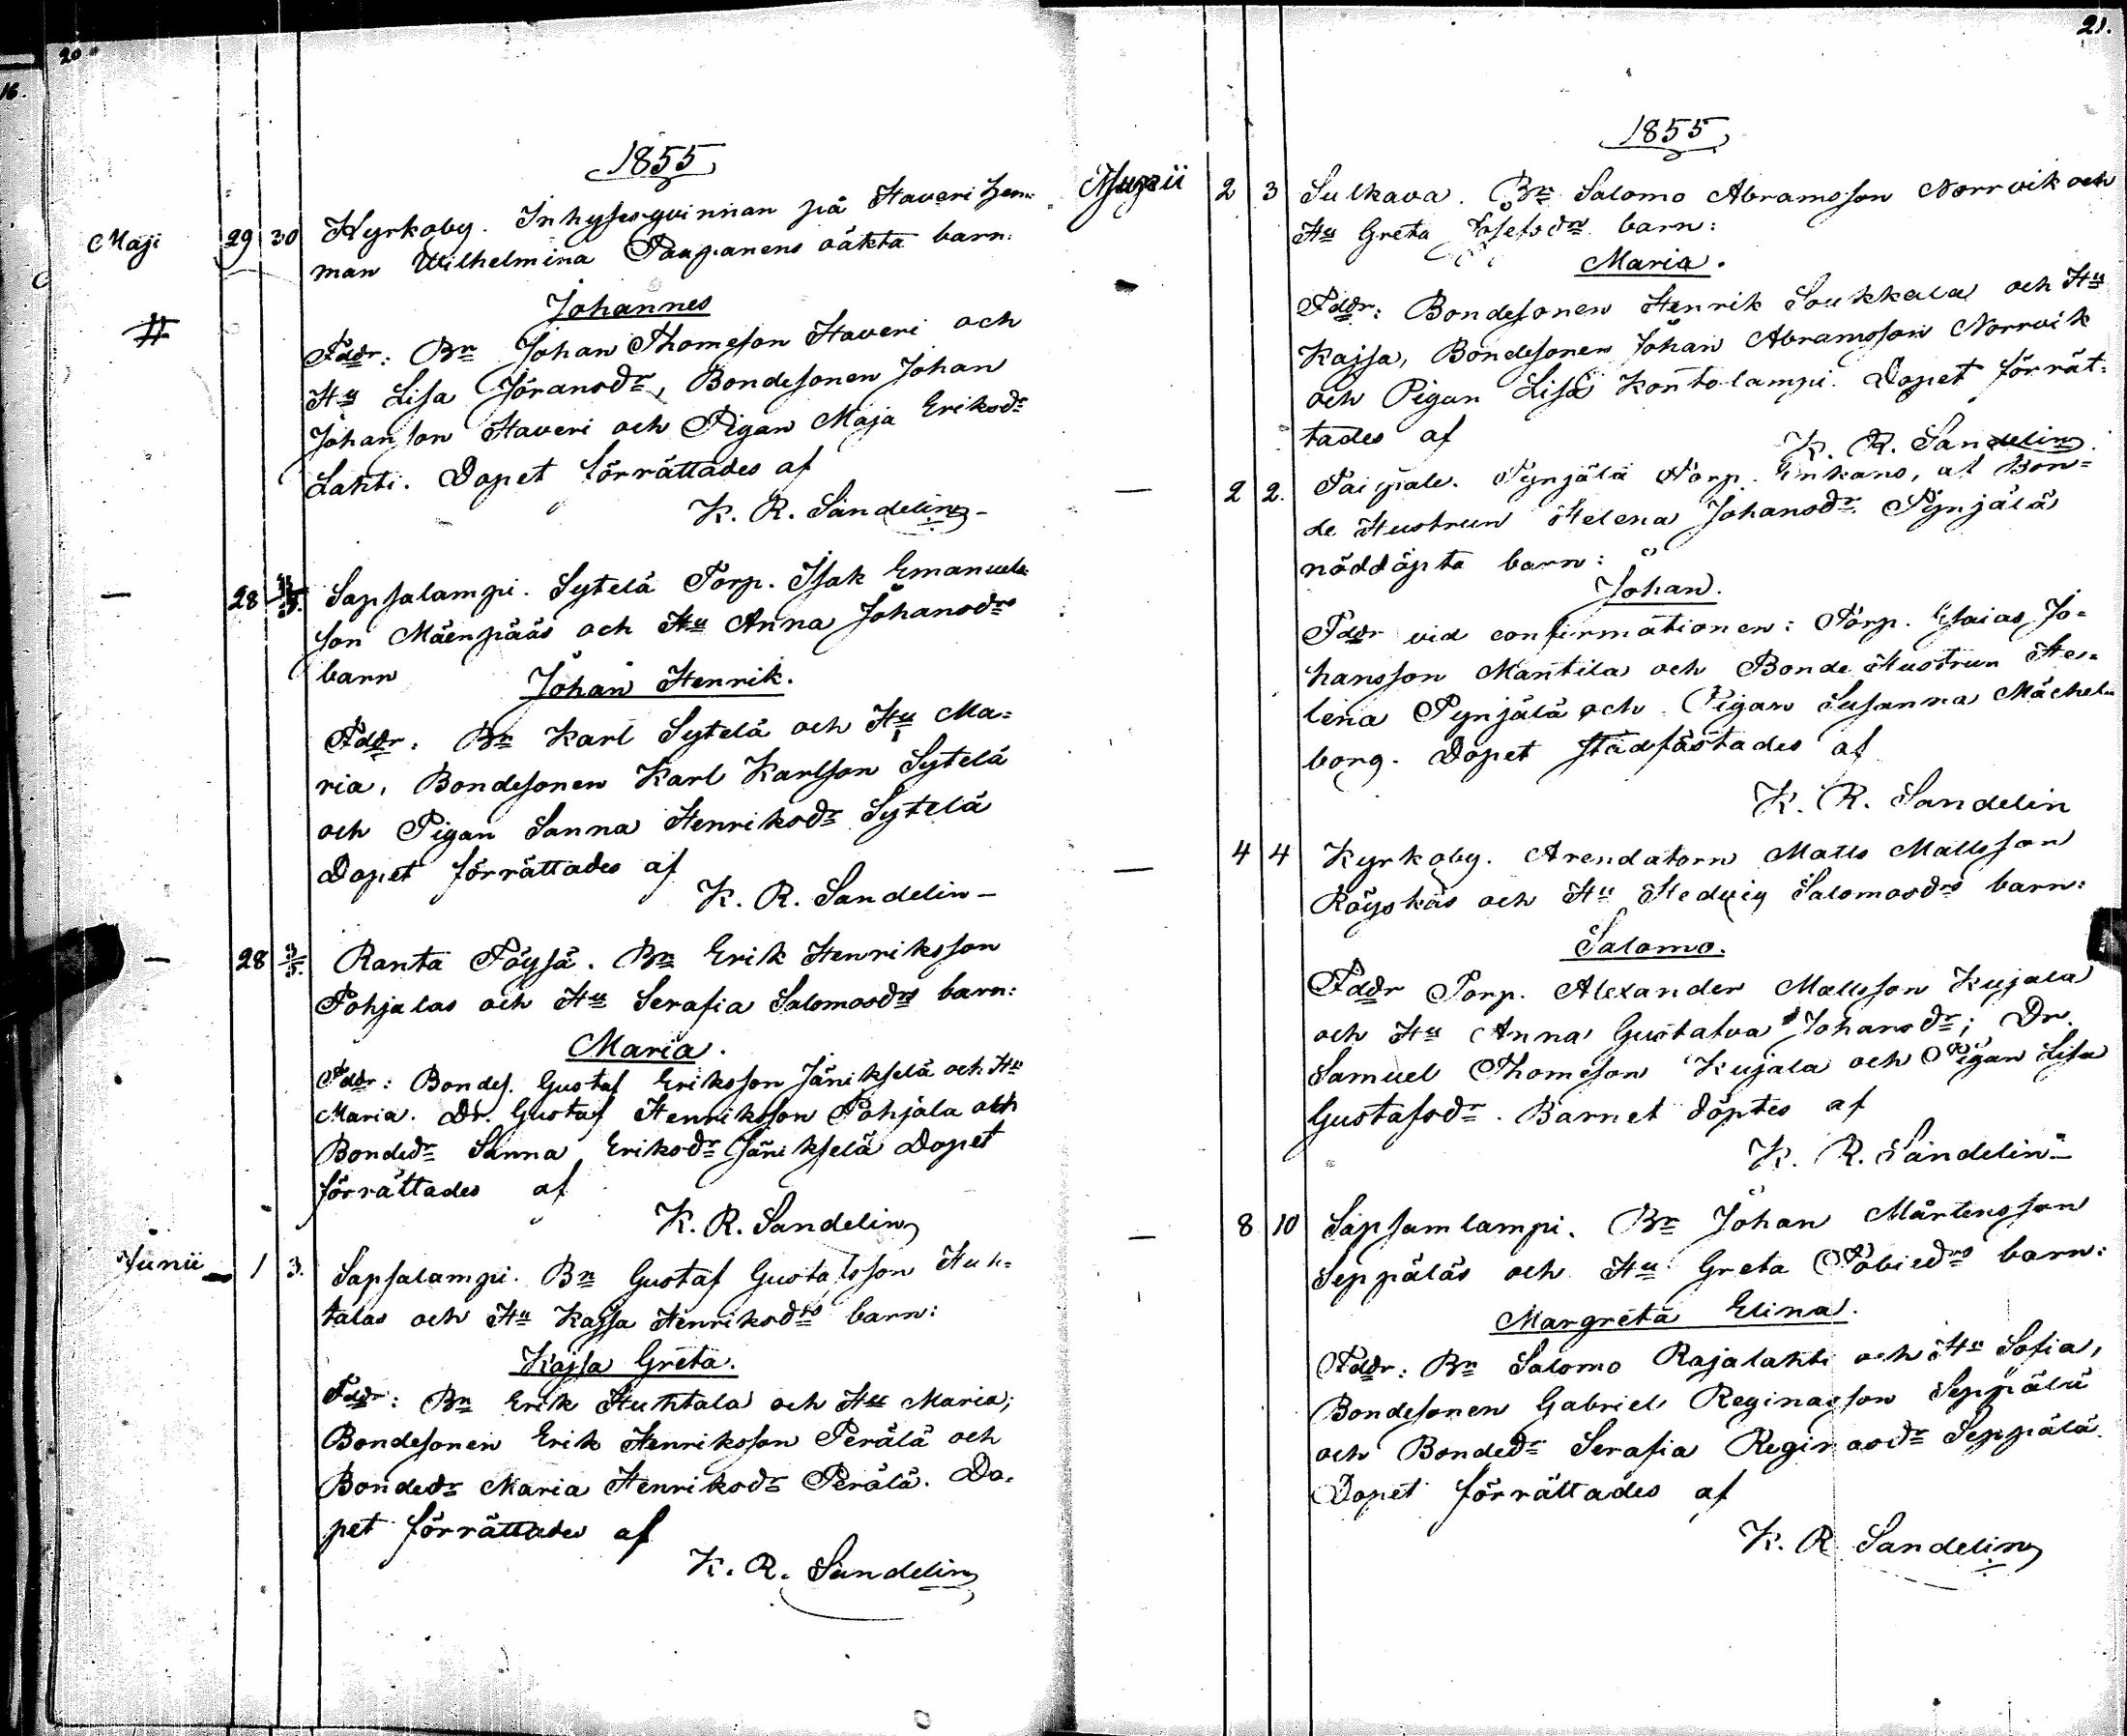 20
16.
1855
Maji 29 30 Kyrkoby. Inhyses qvinnan på Haveri hem-
man Wilhelmina Paapanens oäkta barn:
Johannes
#
Fddr: Bn Johan Thomeson Haveri och
Hu Lisa Jöransdr, Bondesonen Johan
Johanson Haveri och Pigan Maja Eriksdr
Lahti. Dopet förrättades af
K. R. Sandelin
— 28 Sapsalampi. Sytelä Torp. Isak Emanuels
son Mäenpääs och Hu Anna Johansdrs
barn Johan Henrik.
Fddr: Bn Karl Sytelä och Hu Ma=
ria, Bondesonen Karl Karlson Sytelä
och Pigan Sanna Henriksdr Sytelä
Dopet förrättades af
K. R. Sandelin —
— 28 3/5. Ranta Töysä. Bn Erik Henriksson
Pohjalas och Hu Serafia Salomosdrs barn:
Maria.
Fddr: Bondes. Gustaf Eriksson Jänikselä och Hu
Maria. Dr. Gustaf Henriksson Pohjala och
Bondedr Sanna Eriksdr Jänikselä Dopet
förrättades af
K. R. Sandelin
Junii 1 3. Sapsalampi. Bn Gustaf Gustafsson Huh=
talas och Hu Kajsa Henriksdrs barn:
Kajsa Greta.
Fddr: Bn Erik Huhtala och Hu Maria;
Bondesonen Erik Henriksson Perälä och
Bondedr Maria Henriksdr Perälä. Do=
pet förrättades af
K. R. Sandelin
21.
1855
Junii 2 3 Sulkava. Bn Salomo Abramsson Norrvik och
Hu Greta Josefsdrs barn:
Maria.
Fddr: Bondesonen Henrik Soukkala och Hu
Kajsa, Bondesonen Johan Abramsson Norrvik
och Pigan Lisa Kontolampi. Dopet förrät=
tades af
K. R. Sandelin.
— 2 2. Paipale. Pynjälä Torp. Enkans, af Bon=
de Hustrun Helena Johansdr Pynjälä
nöddöpta barn:
Johan.
Fddr vid confirmationen: Torp. Esaias Jo=
hansson Mantila och Bonde Hustrun He=
lena Pynjälä och Pigan Susanna Mächel
borg. Dopet stadfästades af
K. R. Sandelin
— 4 4 Kyrkoby. Arendatorn Matts Mattsson
Röyskäs och Hu Hedvig Salomosdrs barn:
Salomo.
Fddr Torp. Alexander Mattsson Kujala
och Hu Anna Gustafva Johansdr; Dr.
Samuel Thomeson Kujala och Pigan Lisa
Gustafsdr. Barnet döptes af
K. R. Sandelin —
— 8 10 Sapsamlampi. Bn Johan Mårtensson
Seppäläs och Hu Greta Tobiedrs barn:
Margreta Elina.
Fddr: Bn Salomo Rajalahti och Hu Sofia,
Bondesonen Gabriel Reginasson Seppälä
och Bondedr Serafia Reginasdr Seppälä.
Dopet förrättades af
K. R. Sandelin